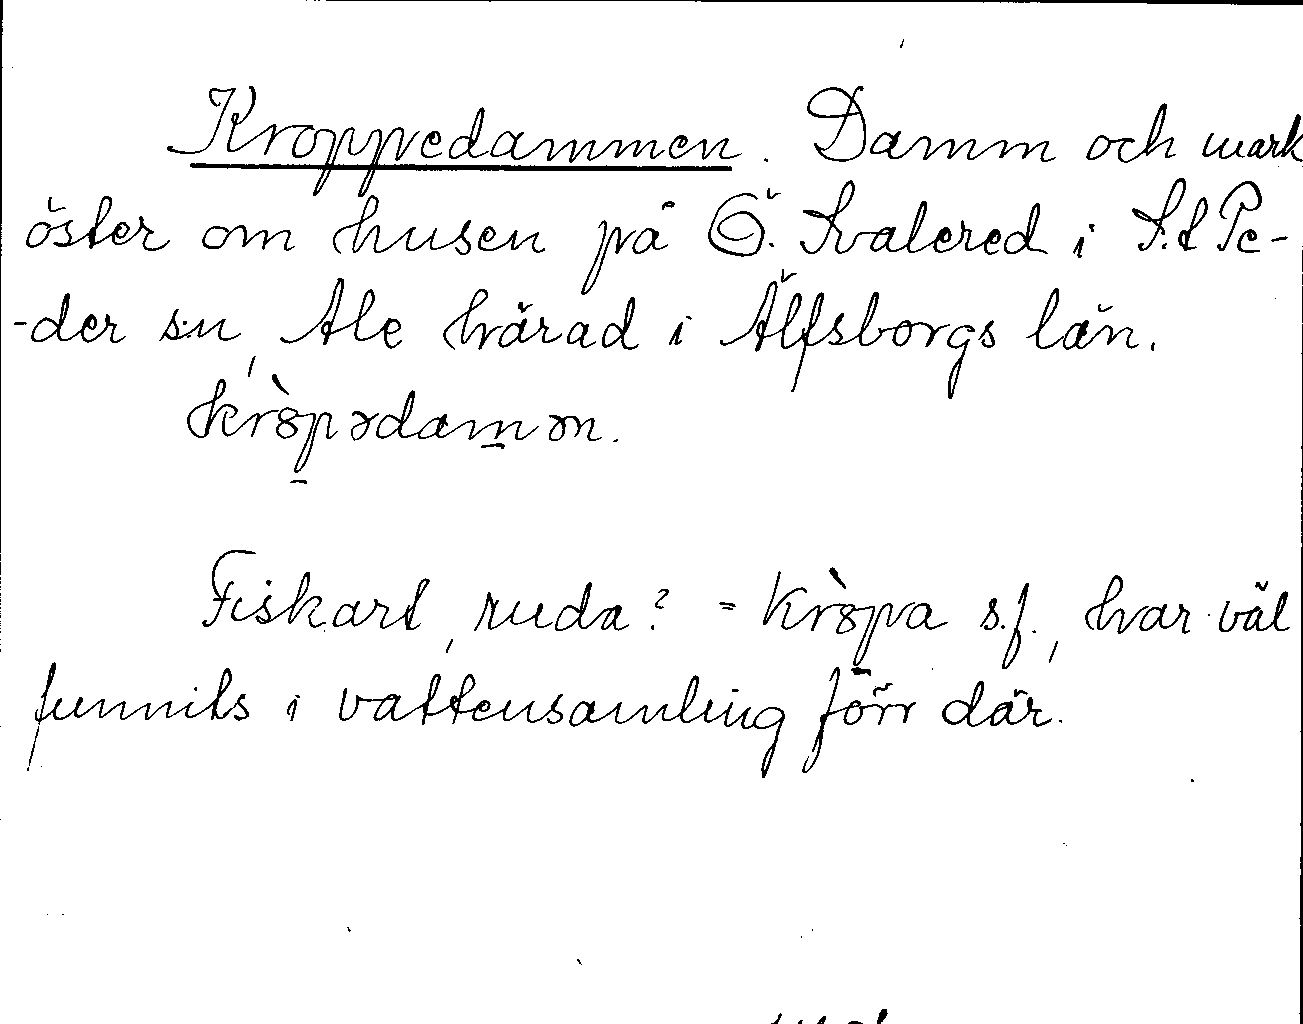 Kroppedammen. Damm och mark
öster om husen på Ö. Kvalered i S:t Pe-
-der s:n, Ale härad i Älfsborgs län.
kròpədamən.
Fiskart, ruda? = kròpa s.f., har väl
funnits i vattensamling förr där.